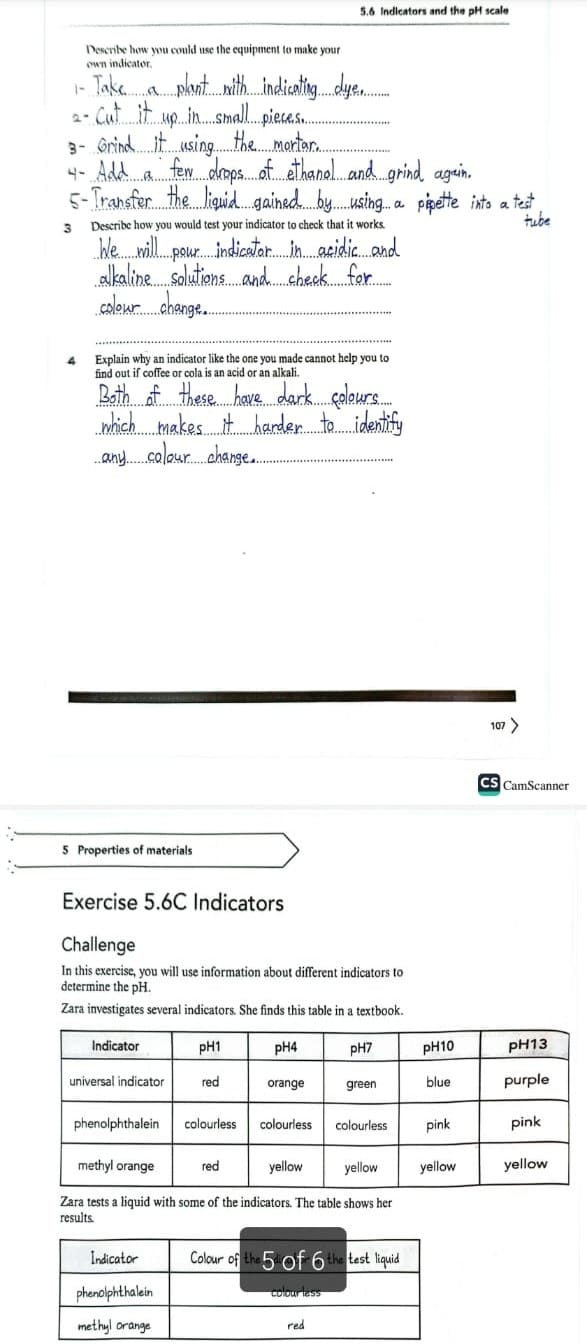 5.6 Indicators and the pH scale
Describe how you could use the equipment to make your
own indicator.
1- Take a plant with indicating dye.
2- Cut it up in small pieces.
3- Grind it using the mortar.
4- Add a few drops of ethanol and grind again.
5- Transfer the liquid gained by using a pipette into a test
tube
3 Describe how you would test your indicator to check that it works.
We will pour indicator in acidic and
alkaline solutions and check for
colour change.
4 Explain why an indicator like the one you made cannot help you to
find out if coffee or cola is an acid or an alkali.
Both of these have dark colours
which makes it harder to identify
any colour change.
107 >
CS CamScanner
5 Properties of materials
Exercise 5.6C Indicators
Challenge
In this exercise, you will use information about different indicators to
determine the pH.
Zara investigates several indicators. She finds this table in a textbook.
Indicator pH1 pH4 pH7 pH10 pH13
universal indicator red orange green blue purple
phenolphthalein colourless colourless colourless pink pink
methyl orange red yellow yellow yellow yellow
Zara tests a liquid with some of the indicators. The table shows her
results.
Indicator Colour of the the test liquid
5 of 6
phenolphthalein colourless
methyl orange red